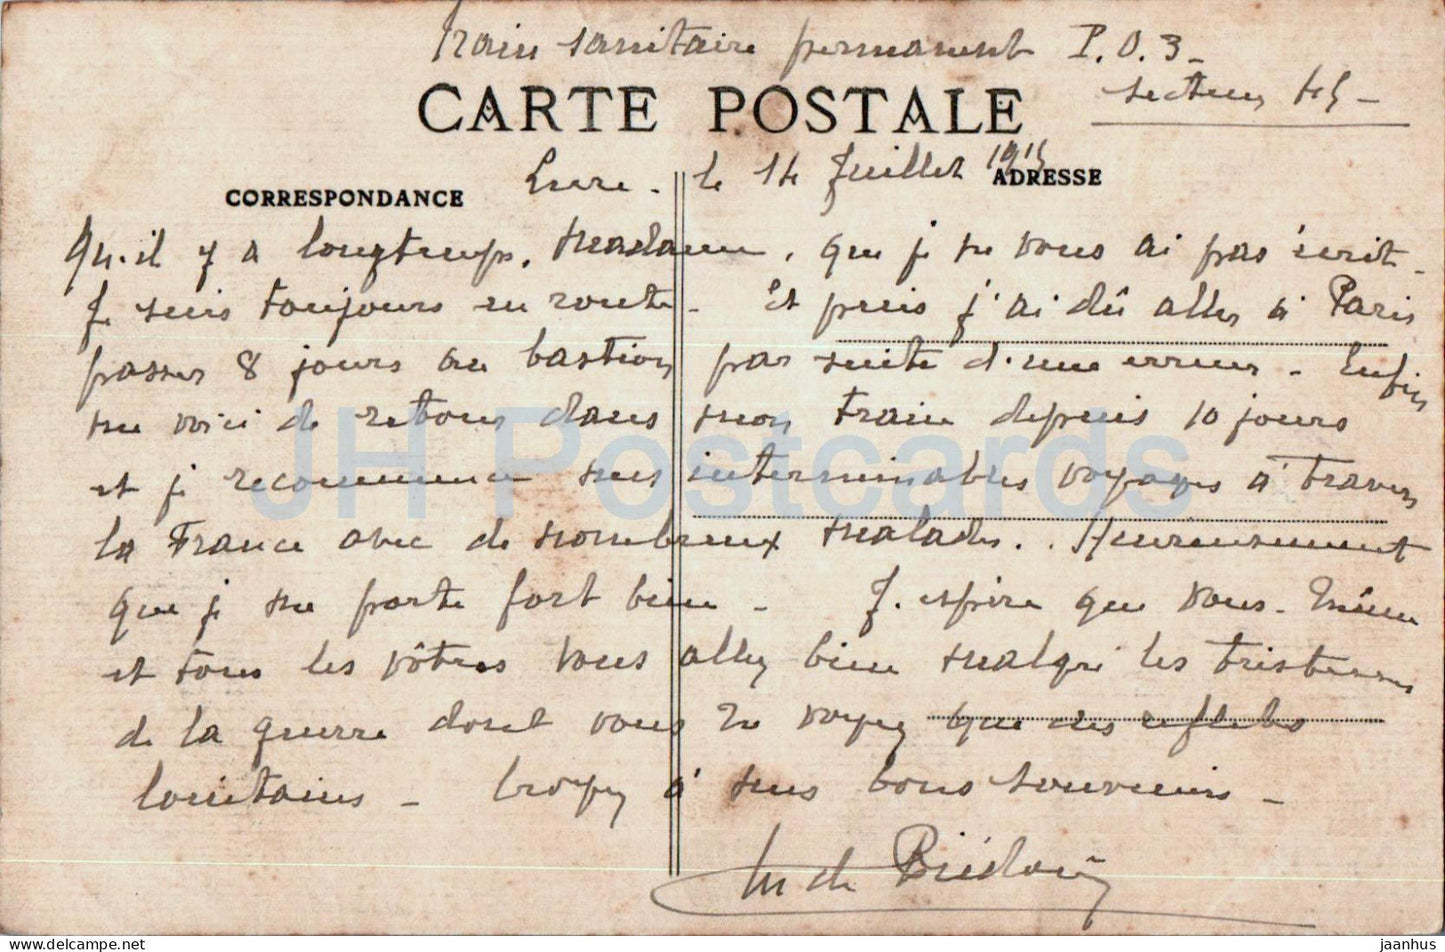 Train sanitaire permanent P.O.3-
secteur
CARTE POSTALE
CORRESPONDANCE
ADRESSE
Lure. le 14 Juillet 1915
Qu'il y a longtemps, Madame, que je ne vous ai pas écrit-
Je suis toujours en route- Et puis j'ai dû aller à Paris
passer 8 jours au bastion par suite d'une erreur- Enfin
me voici de retour dans mon train depuis 10 jours
et je recommence mes interminables voyages à travers
la France avec de nombreux malades. Heureusement
que je me porte fort bien- J'espère que vous-même
et tous les vôtres vous allez bien malgré les tristesses
de la guerre dont vous ne voyez que des reflets
lointains- Croyez à mes bons souvenirs-
JH Postcards
www.delcampe.net
jaanhus